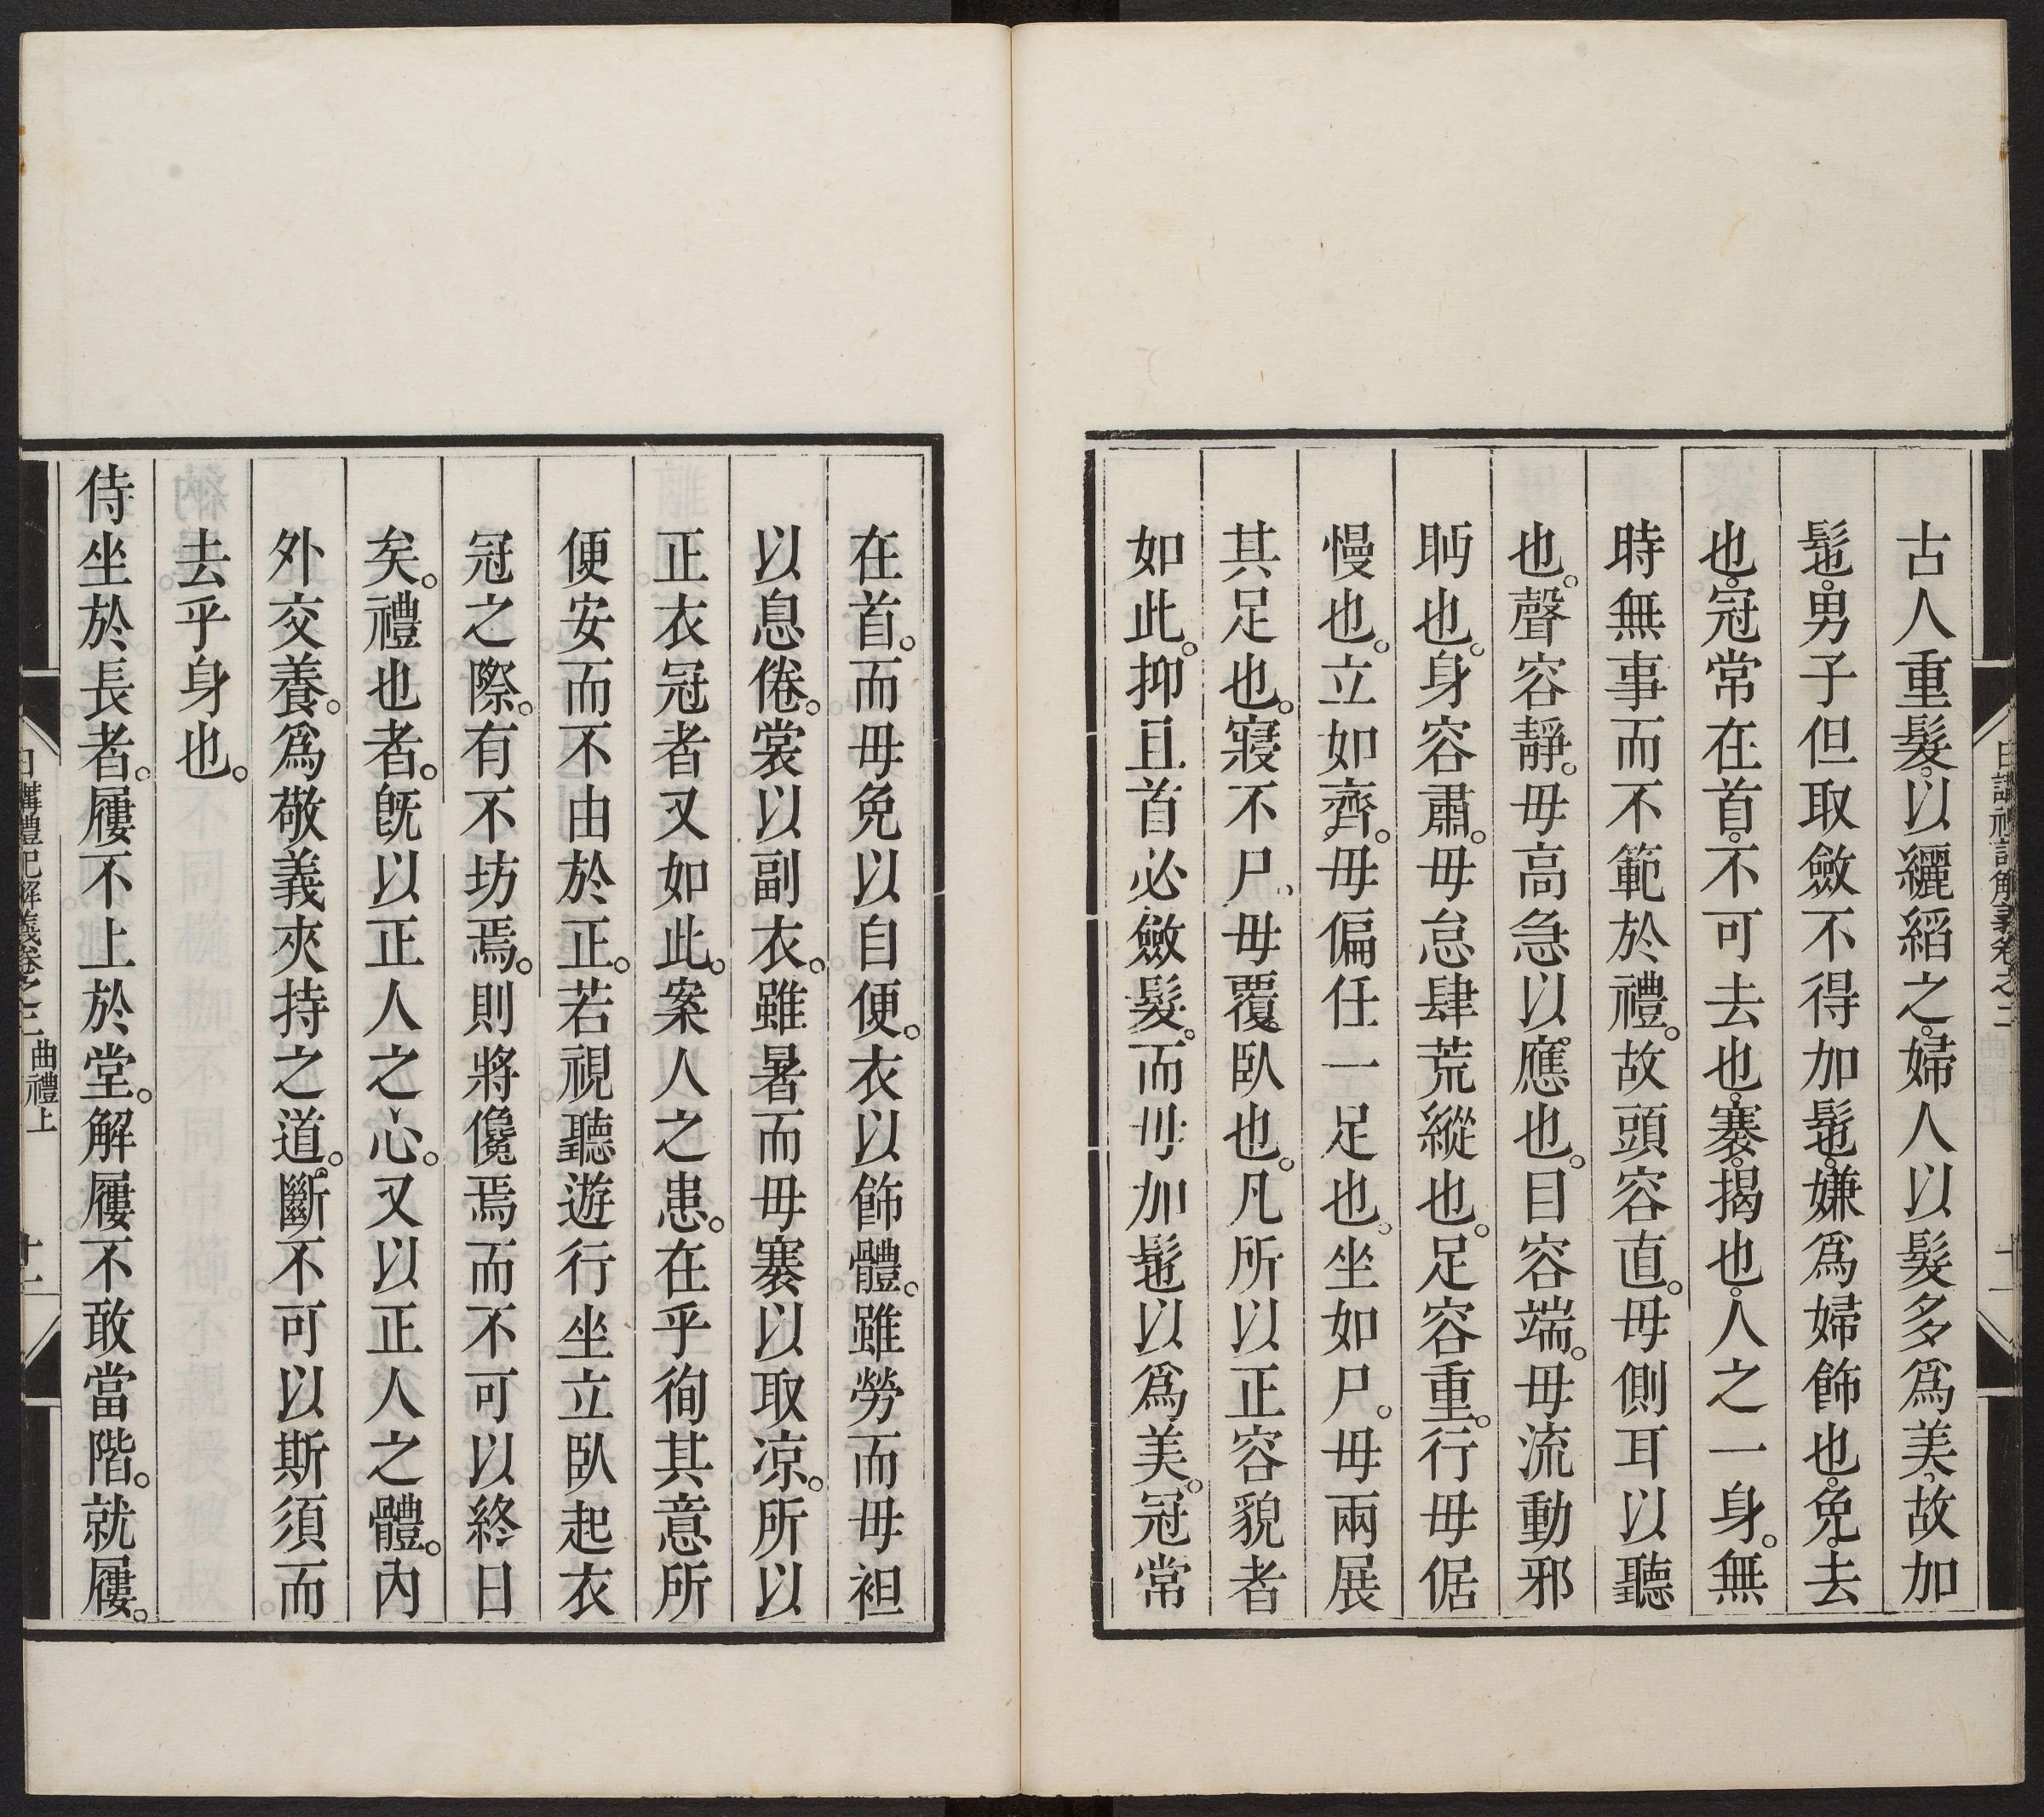 古人重髮。以纚縚之。婦人以髮多爲美。故加
髢。男子但取斂不得加髢。嫌爲婦飾也。免。去
也。冠常在首。不可去也。褰。揭也。人之一身。無
時無事而不範於禮。故頭容直。毋側耳以聽
也。聲容靜。毋高急以應也。目容端。毋流動邪
眄也。身容肅。毋怠肆荒縱也。足容重。行毋倨
慢也。立如齊。毋偏任一足也。坐如尸。毋兩展
其足也。寢不尸、毋覆臥也。凡所以正容貌者
如此。抑且首必斂髮。而毋加髢以爲美。冠常
在首。而毋免以自便。衣以飾體。雖勞而毋袒
以息倦。裳以副衣。雖暑而毋褰以取凉。所以
正衣冠者又如此。案人之患。在乎徇其意所
便安而不由於正。若視聽遊行坐立臥起衣
冠之際。有不坊焉。則將儳焉而不可以終日
矣。禮也者。旣以正人之心。又以正人之體。內
外交養。爲敬義夾持之道。斷不可以斯須而
去乎身也。
侍坐於長者。屨不上於堂。解屨不敢當階。就屨。
日講禮記解義卷之三 曲禮上 十一